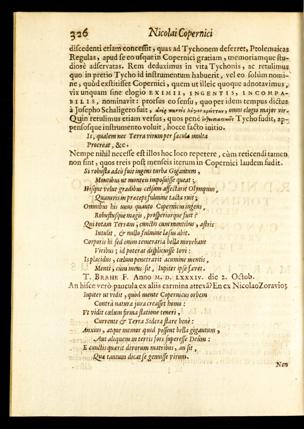 326 Nicolai Copernici
discedenti etiam concessit, quas ad Tychonem deferret, Ptolemaicas
Regulas, apud se eo usque in Copernici gratiam, memoriamque stu-
diosè adservatas. Rem deduximus in vita Tychonis, ac retulimus
quo in pretio Tycho id instrumentum habuerit, vel eo solùm nomi-
ne, quòd exstitisset Copernici, quem ut illeic quoque adnotavimus,
vix unquam sine elogio EXIMII, INGENTIS, INCOMPA-
RABILIS, nominavit: prorsus eo sensu, quo per idem tempus dictus
à Josepho Scaligero fuit,
Quin retulimus etiam versus, quos penè Tycho fudit, ap-
pensosque instrumento voluit, hocce facto initio.
Is, qualem nec Terra virum per sæcula multa
Procreat, &c.
Nempe nihil necesse est illos hoc loco repetere, cùm reticendi tamen
non sint, quos treis post menseis iterum in Copernici laudem fudit.
Si robusta adeò fuit ingens turba Gigantum,
Montibus ut monteis imposuisse queat;
Hisque velut gradibus celsum affectarit Olympum,
Quamvis in præceps fulmine tacta ruit;
Omnibus his unus quanto Copernicus ingens
Robustusque magis, prosperiorque fuit?
Qui totam Terram, cunctis cum montibus, astris
Intulit, & nullo fulmine læsus abit.
Corporis hi sed enim temeraria bella movebant
Viribus; id poterat displicuisse Iovi:
Is placidus, cælum penetrarit acumine mentis,
Menti, cùm mens sit, Iupiter ipse favet.
T. BRAHE F. ANNO M.D.LXXXIV. die 2. Octob.
An hîsce verò paucula ex aliis carmina attexã? En ex Nicolao Zoravio;
Iupiter ut vidit, quòd mente Copernicus orbem
Contrà natura jura creasset humu:
Ut vidit cælum firma statione teneri,
Currente & Terra Sidera stare benè:
Anxius, atque memor quid possent bella gigantum,
Aut aliquem in terris jam superesse Deum:
E cunctis quærit divorum matribus, an sit,
Quæ tantum dicat se genuisse virum.